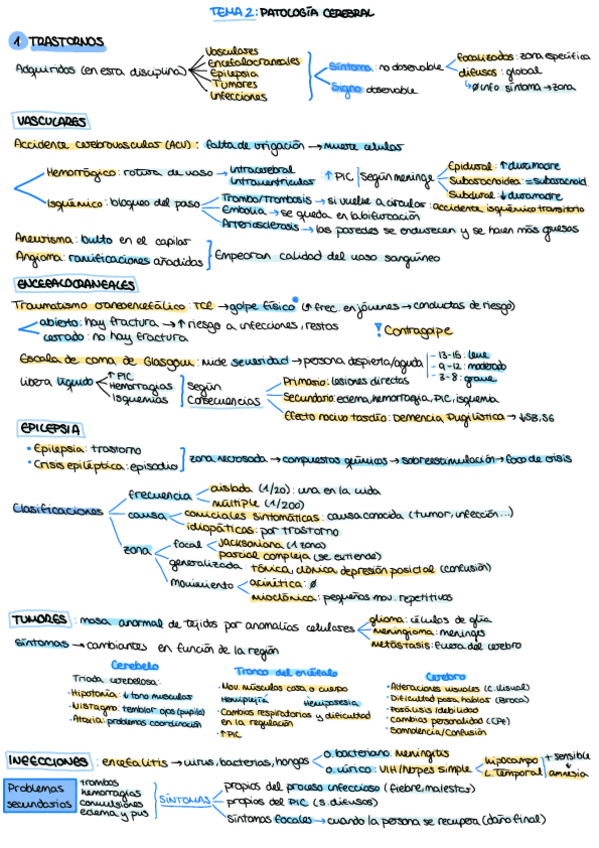 TEMA 2: PATOLOGÍA CEREBRAL
1 TRASTORNOS
Adquiridos (en esta disciplina)
Vasculares
Encefalocraneales
Epilepsia
Tumores
Infecciones
Síntoma: no observable
Signo: observable
focalizados: zona específica
difusos: global
↳ Ø info síntoma → zona
VASCULARES
Accidente cerebrovascular (ACV): falta de irrigación → muerte celular
Hemorrágico: rotura de vaso → Intracerebral
Intraventricular
: ↑ PIC
Según meninge
Epidural: ↑ duramadre
Subaracnoidea: = subaracnoid.
Subdural: ↓ duramadre
Isquémico: bloqueo del paso
Trombo/Trombosis → si vuelve a circular: accidente isquémico transitorio
Embolia → se queda en la bifurcación
Arteriosclerosis → las paredes se endurecen y se hacen más gruesas
Aneurisma: bulto en el capilar
Angioma: ramificaciones añadidas
Empeoran calidad del vaso sanguíneo
ENCEFALOCRANEALES
Traumatismo craneoencefálico: TCE → golpe físico (↑ frec. en jóvenes → conductas de riesgo)
abierto: hay fractura → ↑ riesgo a infecciones, restos
cerrado: no hay fractura
! Contragolpe
Escala de coma de Glasgow: mide severidad → persona despierta/aguda
- 13-15: leve
- 9-12: moderado
- 3-8: grave
Libera líquido
↑ PIC
Hemorragias
Isquemias
Según
Consecuencias
Primario: lesiones directas
Secundario: edema, hemorragia, PIC, isquemia
Efecto nocivo tardío: Demencia Pugilística → ↓SB, SG
EPILEPSIA
• Epilepsia: trastorno
• Crisis epiléptica: episodio
zona necrosada → compuestos químicos → sobreestimulación → foco de crisis
Clasificaciones
frecuencia
aislada (1/20): una en la vida
múltiple (1/200)
causa
comiciales sintomáticas: causa conocida (tumor, infección...)
idiopáticas: por trastorno
zona
focal
Jacksoniana (1 zona)
parcial compleja (se extiende)
generalizada: tónica, clónica, depresión posicial (confusión)
movimiento
acinética: Ø
mioclónica: pequeños mov. repetitivos
TUMORES: masa anormal de tejidos por anomalías celulares
glioma: células de glía
meningioma: meninges
metástasis: fuera del cerebro
síntomas → cambiantes en función de la región
Cerebelo
Triada cerebelosa:
• Hipotonía: ↓ tono muscular
• Nistagmo: temblor ojos (pupila)
• Ataxia: problemas coordinación
Tronco del encéfalo
• Mov. músculos cara o cuerpo
Hemiplejía Hemiparesia
• Cambios respiratorios y dificultad
en la regulación
• ↑ PIC
Cerebro
• Alteraciones visuales (C. Visual)
• Dificultad para hablar (Broca)
• Parálisis/debilidad
• cambios personalidad (CPF)
• Somnolencia/confusión
INFECCIONES: encefalitis → virus, bacterias, hongos
o. bacteriano: meningitis
o. vírico: VIH/herpes simple
hipocampo
L. temporal
+ sensible
↓
amnesia
Problemas
secundarios
trombos
hemorragias
convulsiones
edema y pus
SÍNTOMAS
propios del proceso infeccioso (fiebre, malestar)
propios del PIC (s. difusos)
síntomas focales → cuando la persona se recupera (daño final)